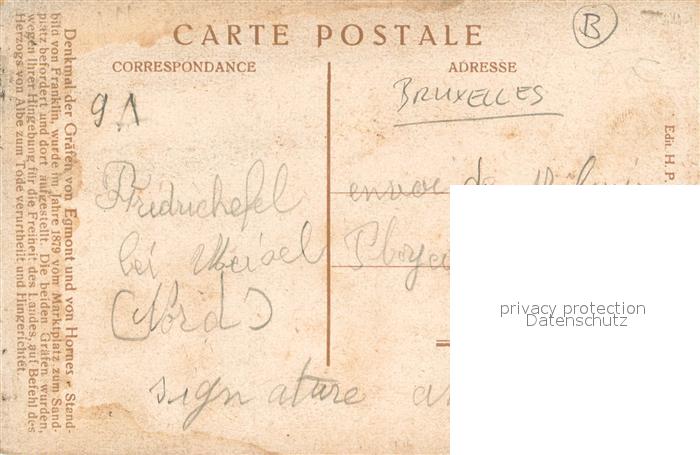 B
CARTE POSTALE
CORRESPONDANCE
ADRESSE
BRUXELLES
Edit. H. P.
envoi
bei
(Nord)
signature
Denkmal der Gräfen von Egmont und von Hornes - Stand-
bild von Franklin, wurde im Jahre 1879 vom Marktplatz zum Sand-
platz befördert und dort aufgestellt. Die beiden Gräfen wurden,
wegen ihrer Hingebung für die Freiheit des Landes, auf Befehl des
Herzogs von Albe zum Tode verurtheilt und Hingerichtet.
privacy protection
Datenschutz